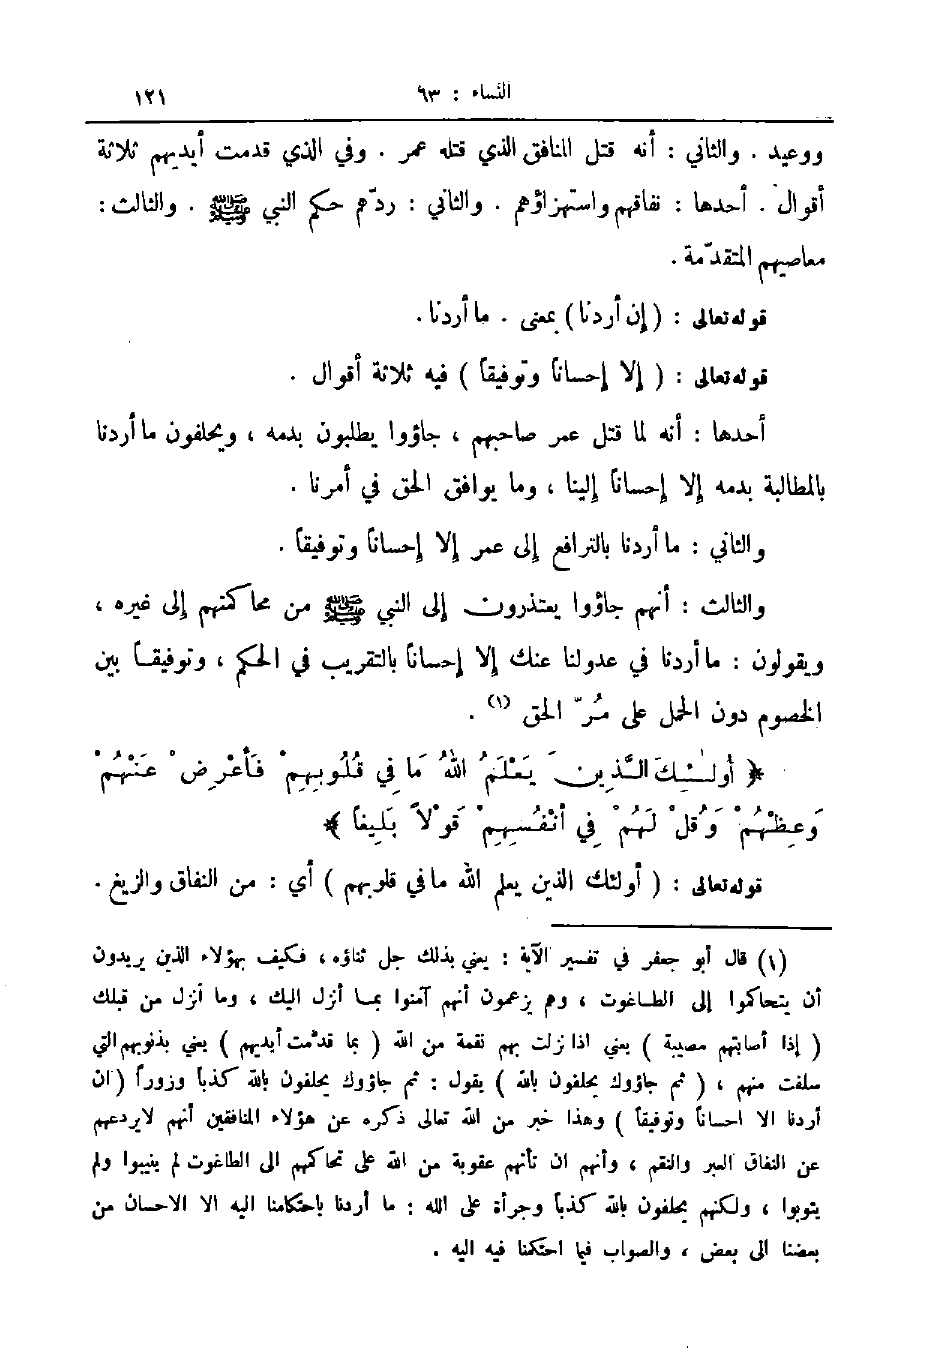 النساء : ٦٣ ١٢١
ووعيد . والثاني : أنه قتل المنافق الذي قتله عمر . وفي الذي قدمت أيديهم ثلاثة
أقوال . أحدها : نفاقهم واستهزاؤهم . والثاني : ردّهم حكم النبي ﷺ . والثالث :
معاصيهم المتقدّمة .
قوله تعالى : ( إن أردنا ) بمعنى . ما أردنا .
قوله تعالى : ( إلا إحساناً وتوفيقاً ) فيه ثلاثة أقوال .
أحدها : أنه لما قتل عمر صاحبهم ، جاؤوا يطلبون بدمه ، ويحلفون ما أردنا
بالمطالبة بدمه إلا إحساناً إلينا ، وما يوافق الحق في أمرنا .
والثاني : ما أردنا بالترافع إلى عمر إلا إحساناً وتوفيقاً .
والثالث : أنهم جاؤوا يعتذرون إلى النبي ﷺ من محاكمتهم إلى غيره ،
ويقولون : ما أردنا في عدولنا عنك إلا إحساناً بالتقريب في الحكم ، وتوفيقاً بين
الخصوم دون الحمل على مُرّ الحق (١) .
﴿ أُولٰئِكَ الَّذِينَ يَعْلَمُ اللهُ مَا فِي قُلُوبِهِمْ فَأَعْرِضْ عَنْهُمْ
وَعِظْهُمْ وَقُلْ لَهُمْ فِي أَنْفُسِهِمْ قَوْلاً بَلِيغاً ﴾
قوله تعالى : ( أولئك الذين يعلم الله ما في قلوبهم ) أي : من النفاق والزيغ .
(١) قال أبو جعفر في تفسير الآية : يعني بذلك جل ثناؤه ، فكيف بهؤلاء الذين يريدون
أن يتحاكموا إلى الطاغوت ، وهم يزعمون أنهم آمنوا بما أنزل اليك ، وما أنزل من قبلك
( إذا أصابتهم مصيبة ) يعني اذا نزلت بهم نقمة من الله ( بما قدّمت أيديهم ) يعني بذنوبهم التي
سلفت منهم ، ( ثم جاؤوك يحلفون بالله ) يقول : ثم جاؤوك يحلفون بالله كذباً وزوراً ( ان
أردنا الا احساناً وتوفيقاً ) وهذا خبر من الله تعالى ذكره عن هؤلاء المنافقين أنهم لا يردعهم
عن النفاق العبر والنقم ، وأنهم ان تأتهم عقوبة من الله على تحاكمهم الى الطاغوت لم ينيبوا ولم
يتوبوا ، ولكنهم يحلفون بالله كذباً وجرأة على الله : ما أردنا باحتكامنا اليه الا الاحسان من
بعضنا الى بعض ، والصواب فيما احتكمنا فيه اليه .